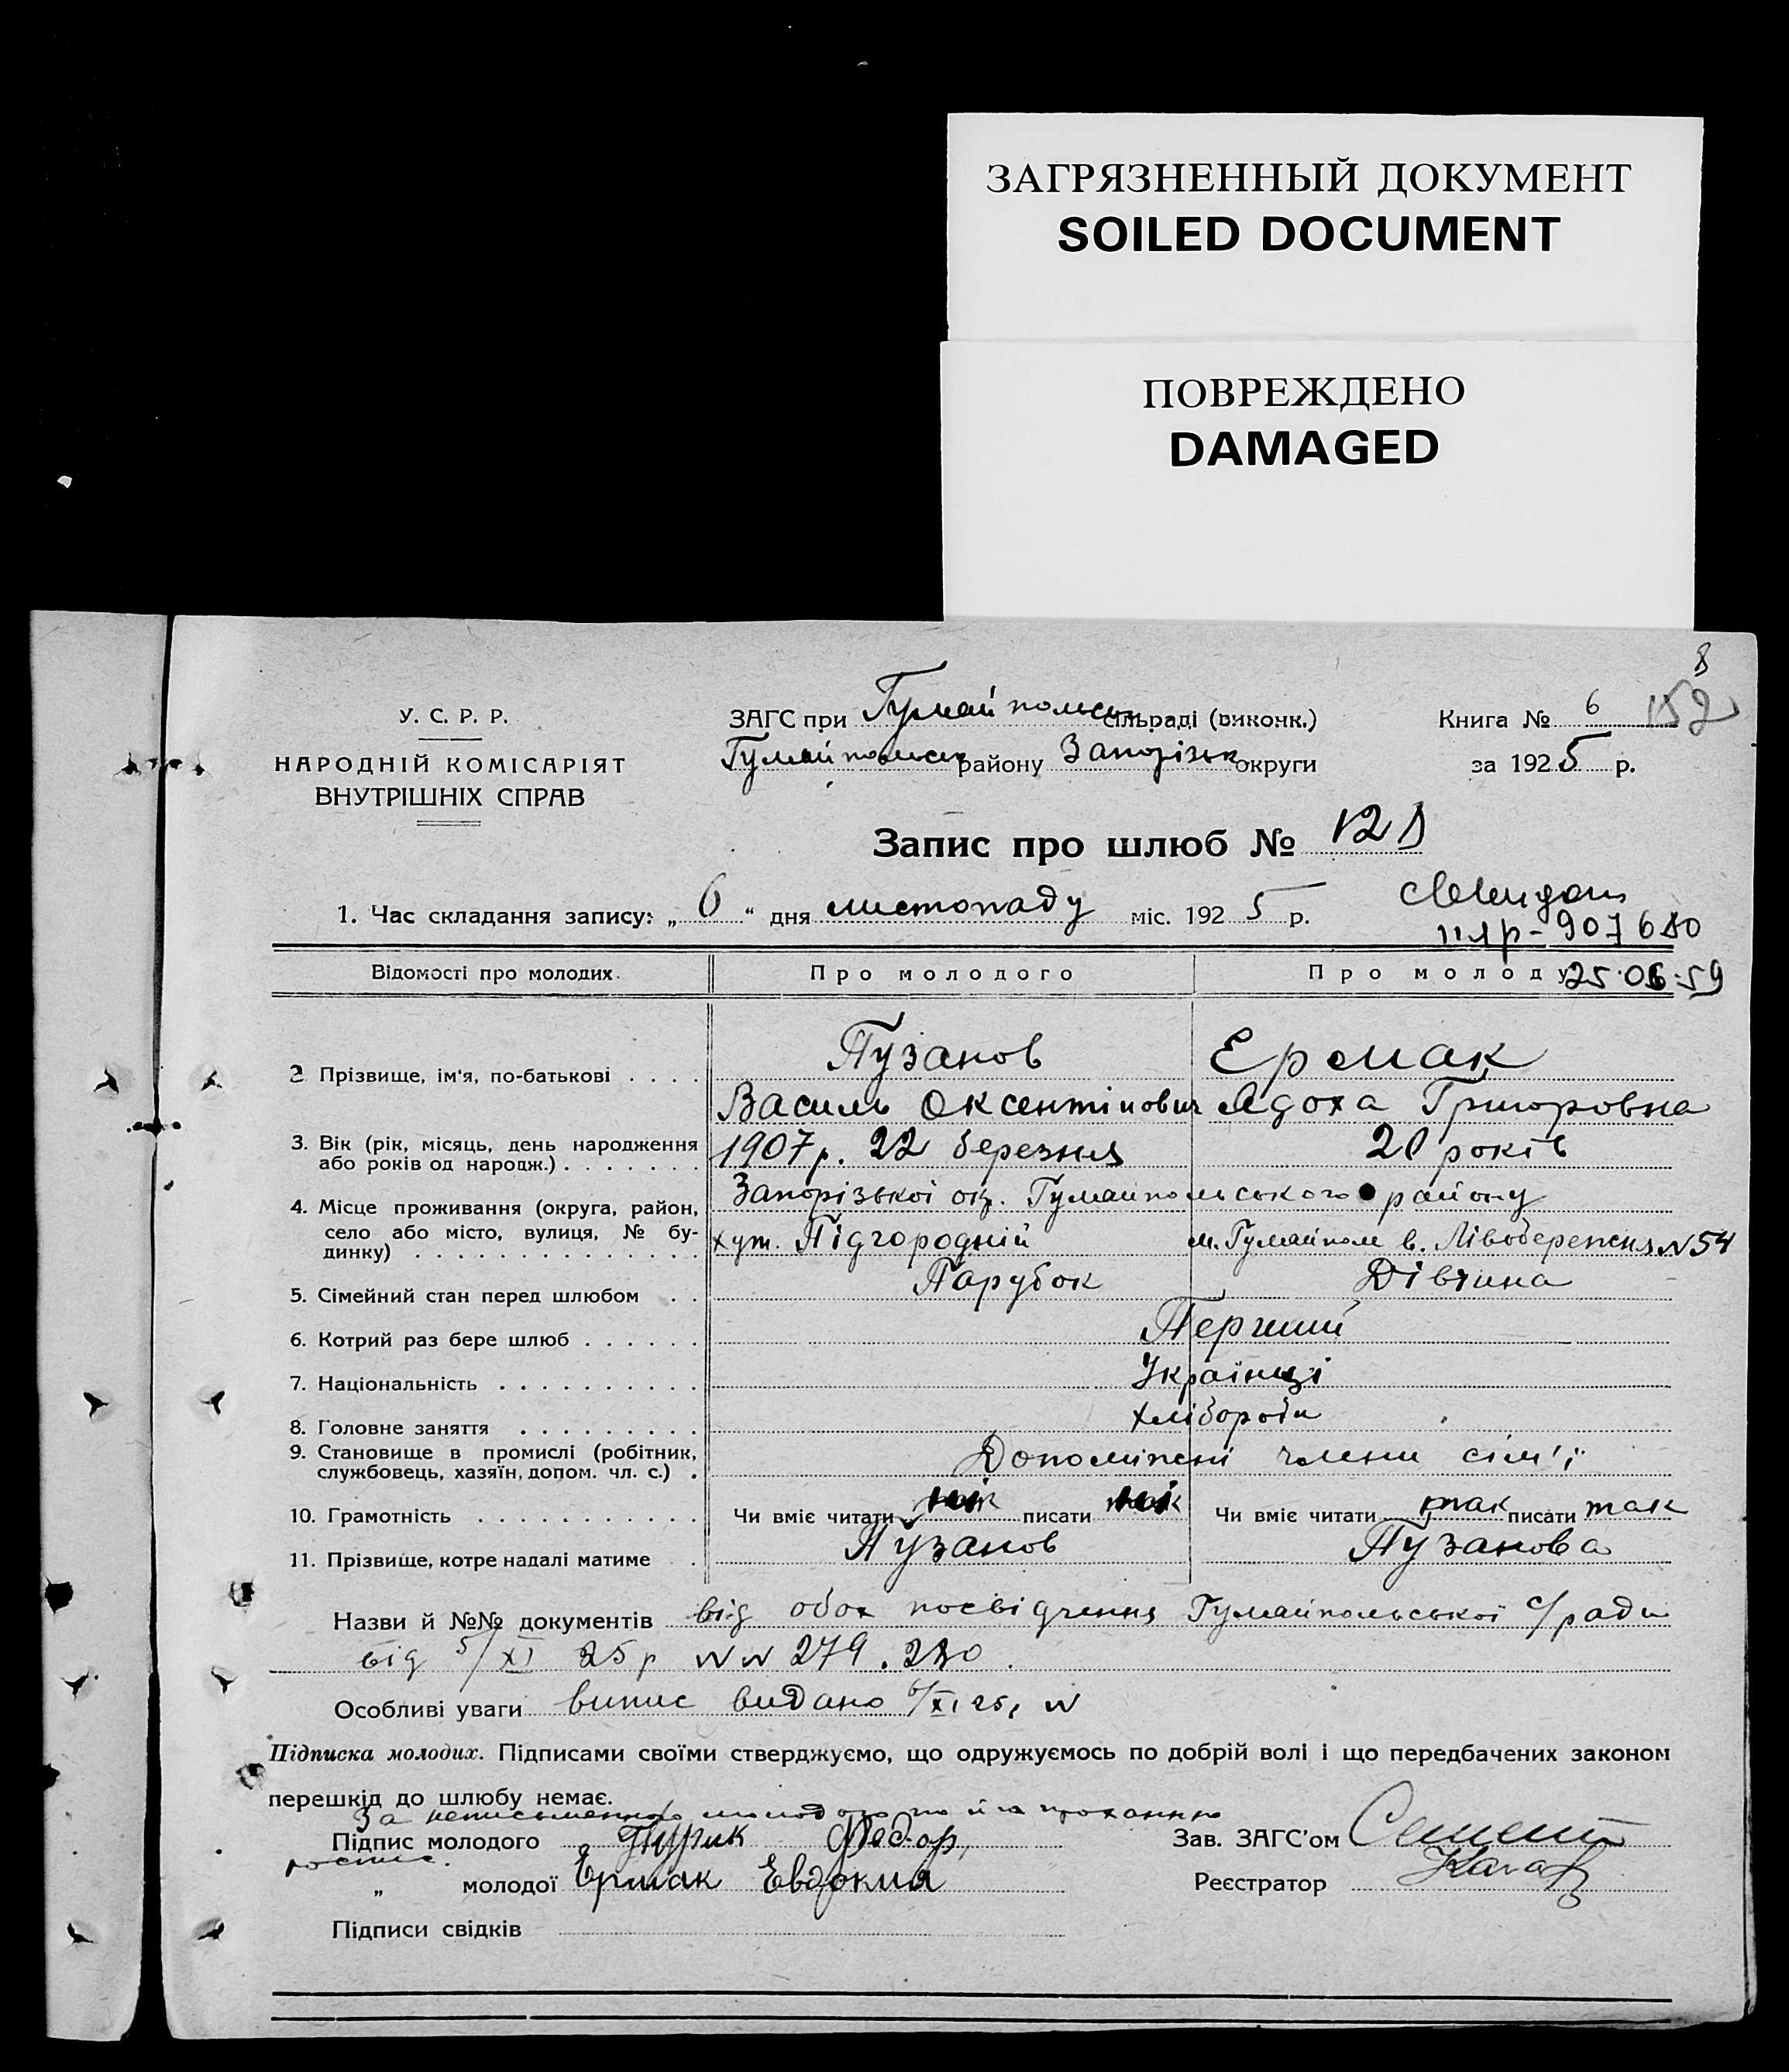 ЗАГРЯЗНЕННЫЙ ДОКУМЕНТ
SOILED DOCUMENT
ПОВРЕЖДЕНО
DAMAGED
8
152
У. С. Р. Р.
НАРОДНІЙ КОМІСАРІЯТ
ВНУТРІШНІХ СПРАВ
ЗАГС при Гуляйпольськ сільраді (виконк.)
Гуляйпольськ району Запорізьк округи
Книга № 6
за 1925 р.
Запис про шлюб № 128
1. Час складання запису: „ 6 “ дня листопаду міс. 1925 р.
907680
25.06.59
Відомості про молодих. Про молодого Про молоду
2 Прізвище, ім'я, по-батькові . . . . Пузанов Ермак
Василь Оксентіпович Ядоха Григоровна
3. Вік (рік, місяць, день народження
або років од народж.) . . . . . . . 1907 р. 22 березня 20 років
4. Місце проживання (округа, район, Запорізької окр. Гуляйпольського району
село або місто, вулиця, № бу-
динку) . . . . . . . . . . . . . . хут. Підгородній м. Гуляйполе в. Лівобережня N 54
5. Сімейний стан перед шлюбом . . Парубок Дівчина
6. Котрий раз бере шлюб . . . . . . Перший
7. Національність . . . . . . . . . . Українці
8. Головне заняття . . . . . . . . . хлібороби
9. Становище в промислі (робітник,
службовець, хазяїн, допом. чл. с.) . Допоміжені члени сім'ї
10. Грамотність . . . . . . . . . . . Чи вміє читати ні писати ні Чи вміє читати так писати так
11. Прізвище, котре надалі матиме . Пузанов Пузанова
Назви й №№ документів від обох посвідчення Гуляйпольської с/ради
від 5/XI 25 р N N 279. 280.
Особливі уваги випис видано 6/XI 25, N
Підписка молодих. Підписами своїми стверджуємо, що одружуємось по добрій волі і що передбачених законом
перешкід до шлюбу немає.
За неписьменного молодого по його проханню
Підпис молодого Федор,
роспис.
„ молодої Ермак Евдокия
Зав. ЗАГС'ом
Реєстратор
Підписи свідків